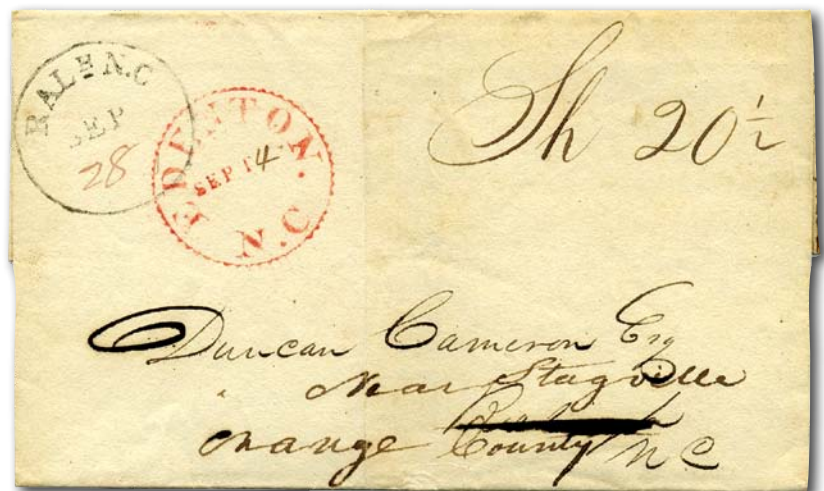 RALH N.C
SEP
28
EDENTON.
SEP 14
N.C
Sh 20 1/2
Duncan Cameron Esq
Near Stagville
Orange County N C